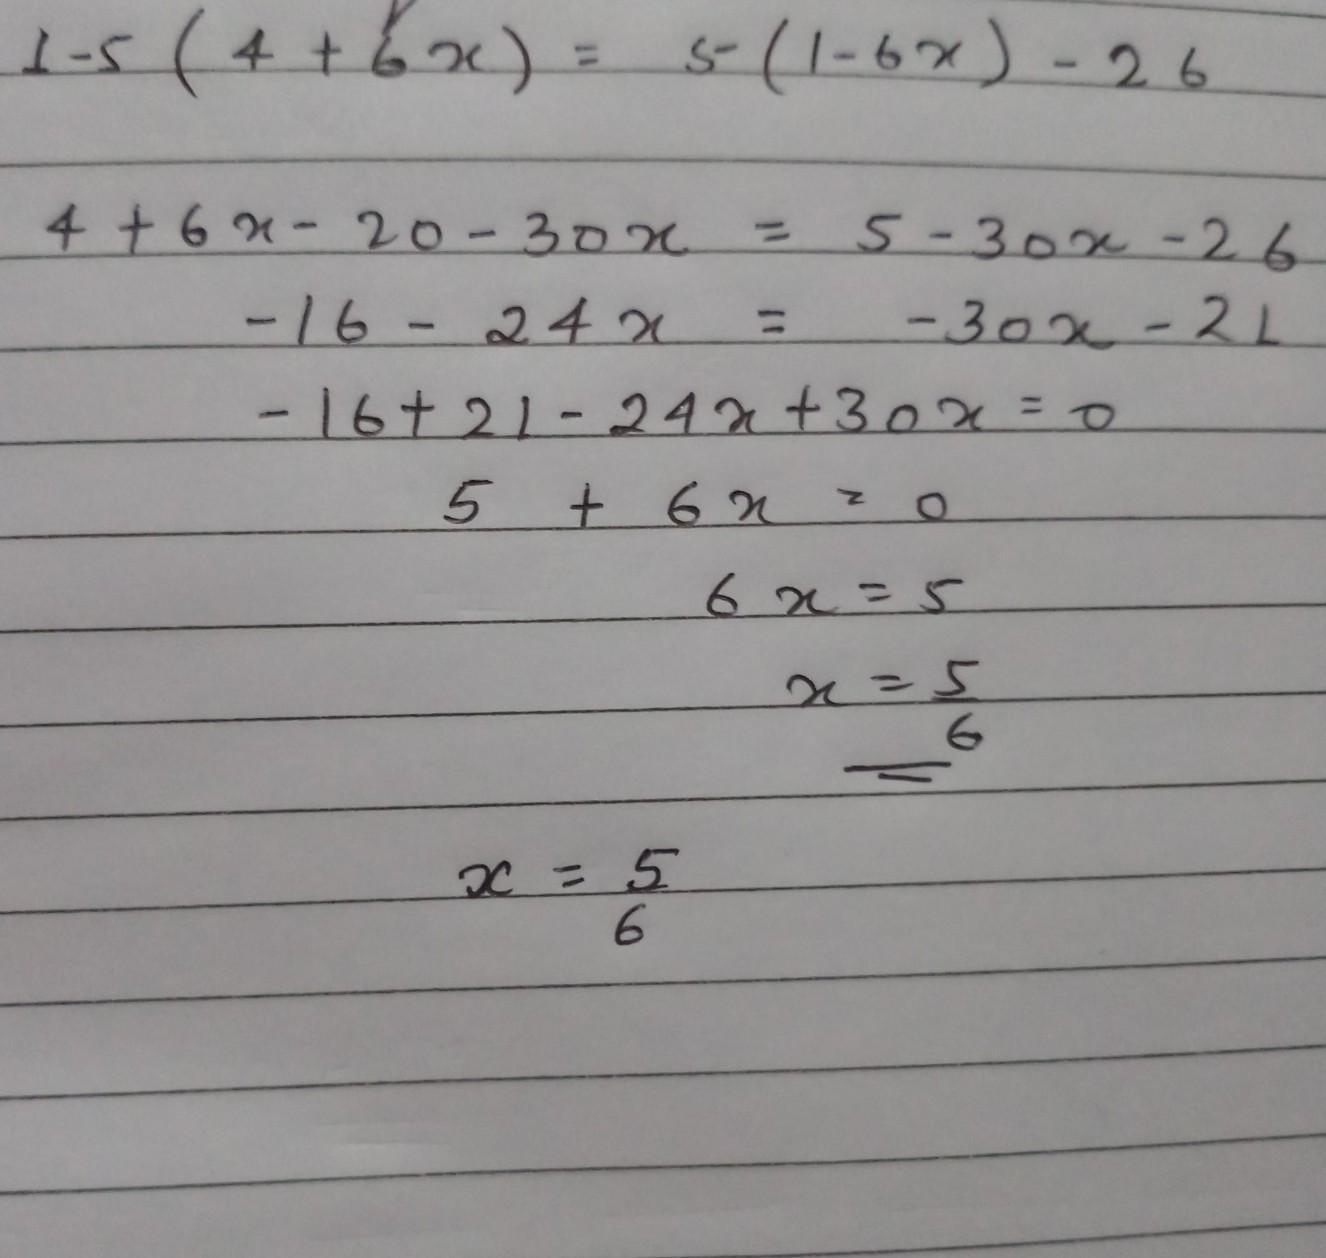 1-5 ( 4 + 6x ) = 5 (1-6x) - 26
4 + 6x - 20 - 30x = 5 - 30x - 26
-16 - 24x = -30x - 21
-16 + 21 - 24x + 30x = 0
5 + 6x = 0
6x = 5
x = 5/6
x = 5/6